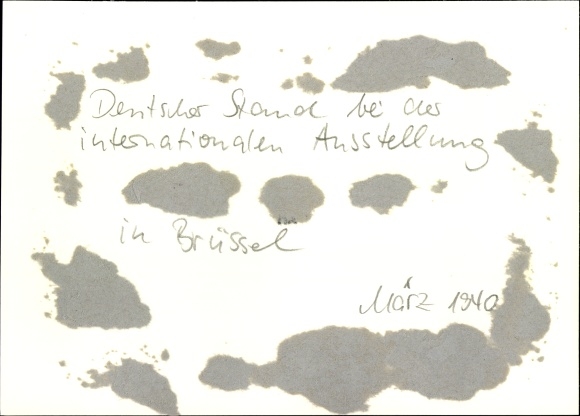 Deutscher Stand bei der
internationalen Ausstellung
in Brüssel
März 1940